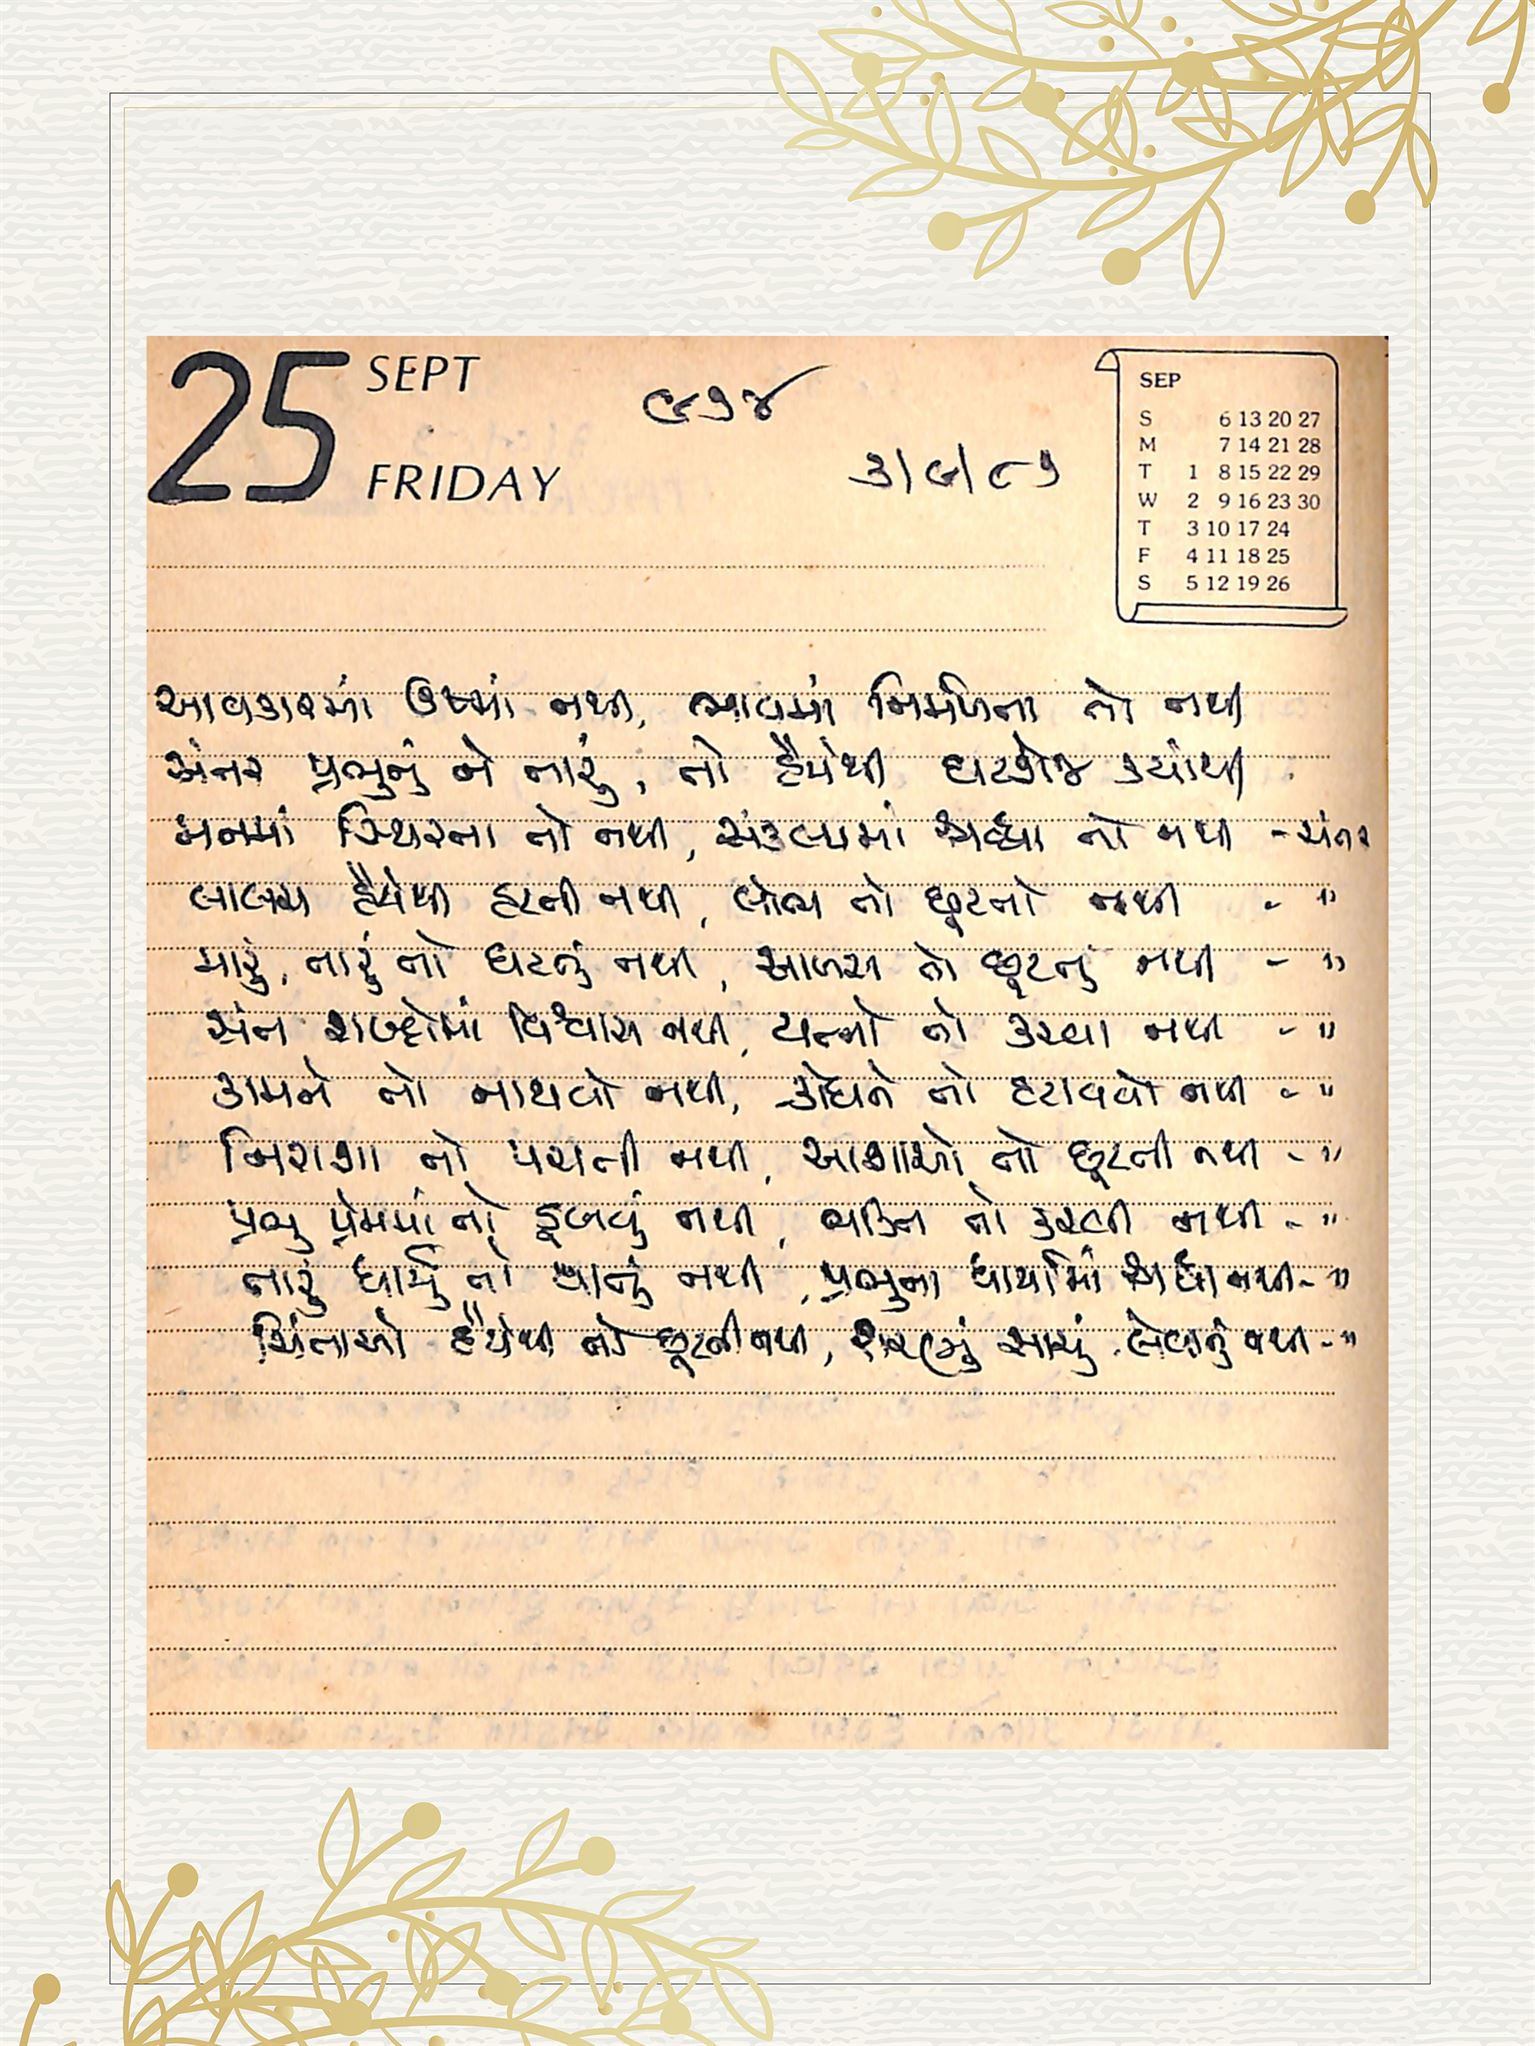 25 SEPT
FRIDAY
૯૭૪
૩/૭/૮૭
SEP
S 6 13 20 27
M 7 14 21 28
T 1 8 15 22 29
W 2 9 16 23 30
T 3 10 17 24
F 4 11 18 25
S 5 12 19 26
આવકારમાં ઉષ્માં નથી, ભાવમાં નિર્મળતા તો નથી
અંતર પ્રભુનું ને તારું, તો હૈયેથી ઘટશેજ ક્યાંથી
મનમાં સ્થિરતા તો નથી, સંકલ્પમાં શ્રધ્ધા તો નથી - અંતર
લાલચ હૈયેથી હટતી નથી, લોભ તો છૂટતો નથી - "
મારું, તારું તો ઘટતું નથી, આળસ તો છૂટતું નથી - "
સંત શબ્દોમાં વિશ્વાસ નથી, યત્નો તો કરવા નથી - "
કામને તો નાથવો નથી, ક્રોધને તો હટાવવો નથી - "
નિરાશા તો પચતી નથી, આશાઓ તો છૂટતી નથી - "
પ્રભુ પ્રેમમાં તો ડૂબવું નથી, ભક્તિ તો કરવી નથી - "
તારું ધાર્યું તો થાતું નથી, પ્રભુના ધાર્યામાં શ્રધા નથી - "
ચિંતાઓ હૈયેથી તો છૂટતી નથી, શરણું સાચું લેવાતું નથી - "